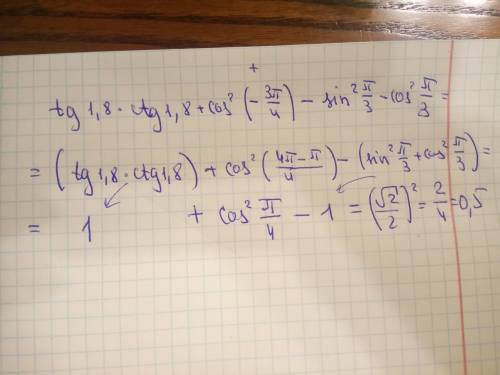 +
tg 1,8 · ctg 1,8 + cos² (-3π/4) - sin² π/3 - cos² π/3 =
= (tg 1,8 · ctg 1,8) + cos² (4π-π/4) - (sin² π/3 + cos² π/3) =
= 1 + cos² π/4 - 1 = (√2/2)² = 2/4 = 0,5